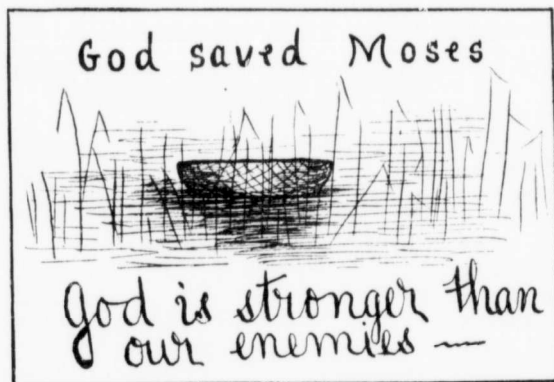 God saved Moses
God is stronger than
our enemies —